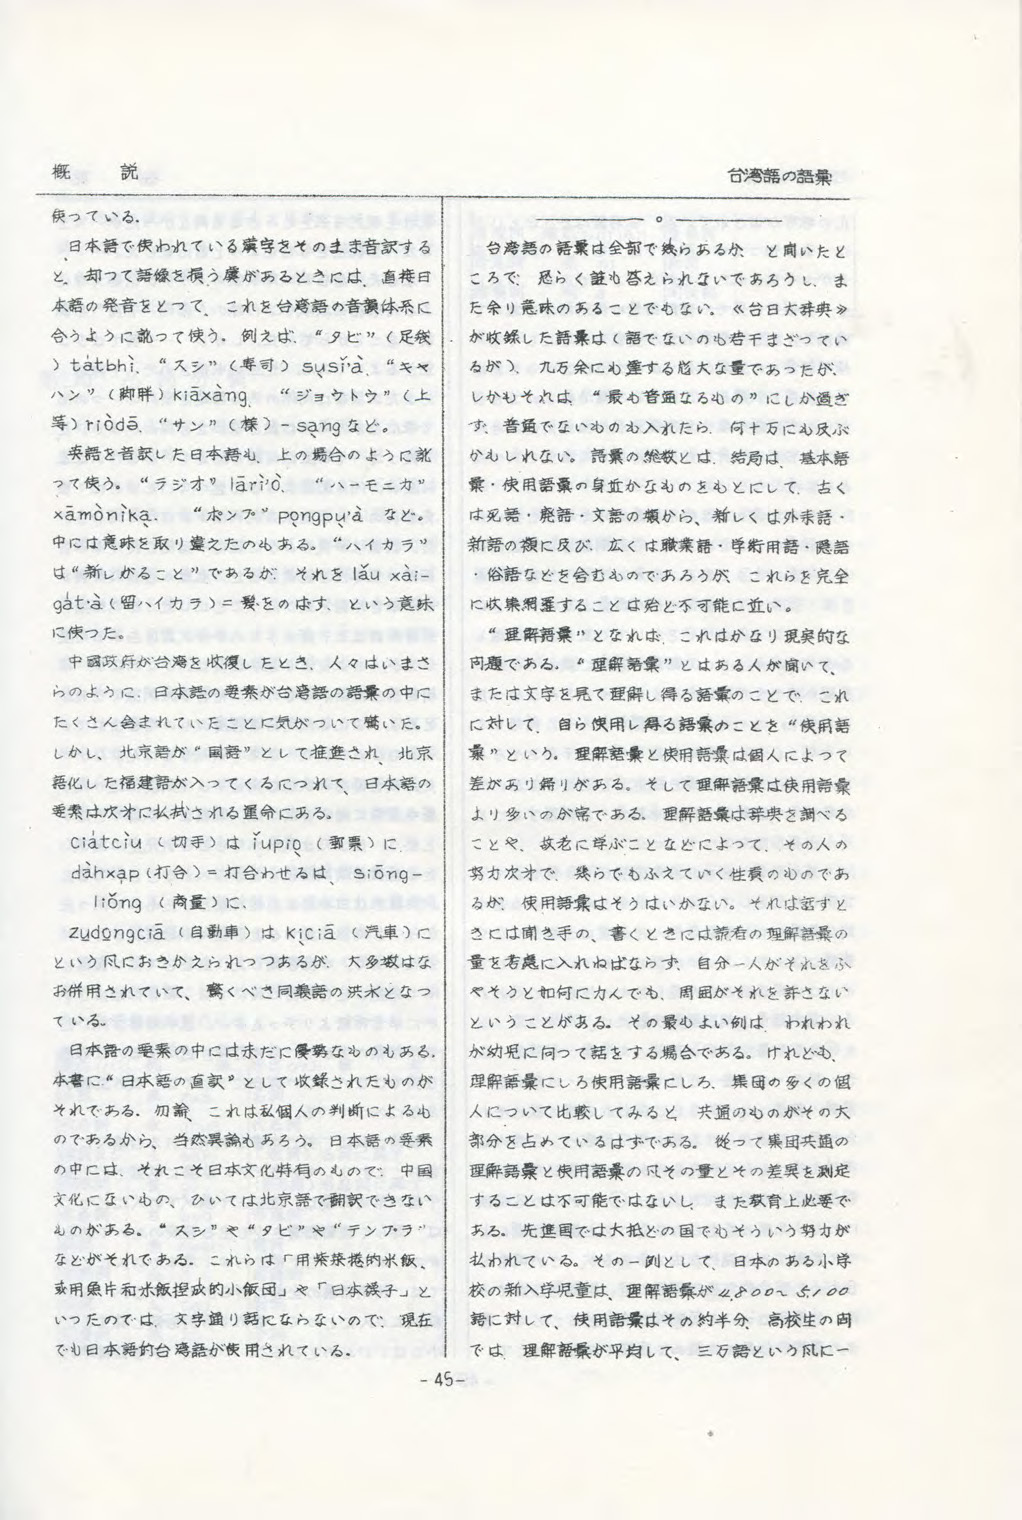 概　　説
台湾語の語彙
使っている。
日本語で使われている漢字をそのまま音訳する
と、却つて語像を損う虞があるときには、直接日
本語の発音をとつて、これを台湾語の音韻体系に
合うように訛って使う。例えば、“タビ”（足袋
）tátbhì、“スシ”（寿司）sụsǐ'à、“キャ
ハン”（脚胖）kiāxàng、“ジョウトウ”（上
等）riòdā、“サン”（様）-sạngなど。
英語を音訳した日本語も、上の場合のように訛
って使う。“ラジオ”lārì'ò、“ハーモニカ”
xāmònìkạ、“ポンプ”pọngpụ'àなど。
中には意味を取り違えたのもある。“ハイカラ”
は“新しがること”であるが、それをlǎu xài-
gát'à（留ハイカラ）＝髪をのばす、という意味
に使つた。
中國政府が台湾を收復したとき、人々はいまさ
らのように、日本語の要素が台湾語の語彙の中に
たくさん含まれていたことに気がついて驚いた。
しかし、北京語が“国語”として推進され、北京
語化した福建語が入ってくるにつれて、日本語の
要素は次才に払拭される運命にある。
ciátciu（切手）はǐupiọ（郵票）に、
dàhxạp（打合）＝打合わせるは、siōng-
liǒng（商量）に、
zụdọngciā（自動車）はkịciā（汽車）に
という風におきかえられつつあるが、大多数はな
お併用されていて、驚くべき同義語の洪水となつ
ている。
日本語の要素の中には未だに優勢なものもある。
本書に“日本語の直訳”として收録されたものが
それである。勿論、これは私個人の判断によるも
のであるから、当然異論もあろう。日本語の要素
の中には、それこそ日本文化特有のもので、中国
文化にないもの、ひいては北京語で翻訳できない
ものがある。“スシ”や“タビ”や“テンプラ”
などがそれである。これらは「用紫菜捲的米飯、
或用魚片和米飯捏成的小飯団」や「日本襪子」と
いったのでは、文字通り話にならないので、現在
でも日本語的台湾語が使用されている。
。
台湾語の語彙は全部で幾らあるか、と聞いたと
ころで、恐らく誰も答えられないであろうし、ま
た余り意味のあることでもない。≪台日大辞典≫
が收録した語彙は（語でないのも若干まざってい
るが）、九万余にも達する尨大な量であったが、
しかもそれは、“最も普通なるもの”にしか過ぎ
ず、普通でないものも入れたら、何十万にも及ぶ
かもしれない。語彙の総数とは、結局は、基本語
彙・使用語彙の身近かなものをもとにして、古く
は死語・廃語・文語の類から、新しくは外来語・
新語の類に及び、広くは職業語・学術用語・隠語
・俗語などを含むものであろうが、これらを完全
に收集網羅することは殆ど不可能に近い。
“理解語彙”となれば、これはかなり現実的な
問題である。“理解語彙”とはある人が聞いて、
または文字を見て理解し得る語彙のことで、これ
に対して、自ら使用し得る語彙のことを“使用語
彙”という。理解語彙と使用語彙は個人によつて
差があり偏りがある。そして理解語彙は使用語彙
より多いのが常である。理解語彙は辞典を調べる
ことや、故老に学ぶことなどによって、その人の
努力次才で、幾らでもふえていく性質のものであ
るが、使用語彙はそうはいかない。それは話すと
きには聞き手の、書くときには読者の理解語彙の
量を考慮に入れねばならず、自分一人がそれをふ
やそうと如何に力んでも、周囲がそれを許さない
ということがある。その最もよい例は、われわれ
が幼児に向って話をする場合である。けれども、
理解語彙にしろ使用語彙にしろ、集団の多くの個
人について比較してみると、共通のものがその大
部分を占めているはずである。従って集団共通の
理解語彙と使用語彙の凡その量とその差異を測定
することは不可能ではないし、また教育上必要で
ある。先進国では大抵どの国でもそういう努力が
払われている。その一例として、日本のある小学
校の新入学児童は、理解語彙が4,800〜5,100
語に対して、使用語彙はその約半分、高校生の間
では、理解語彙が平均して、三万語という風に一
-45-